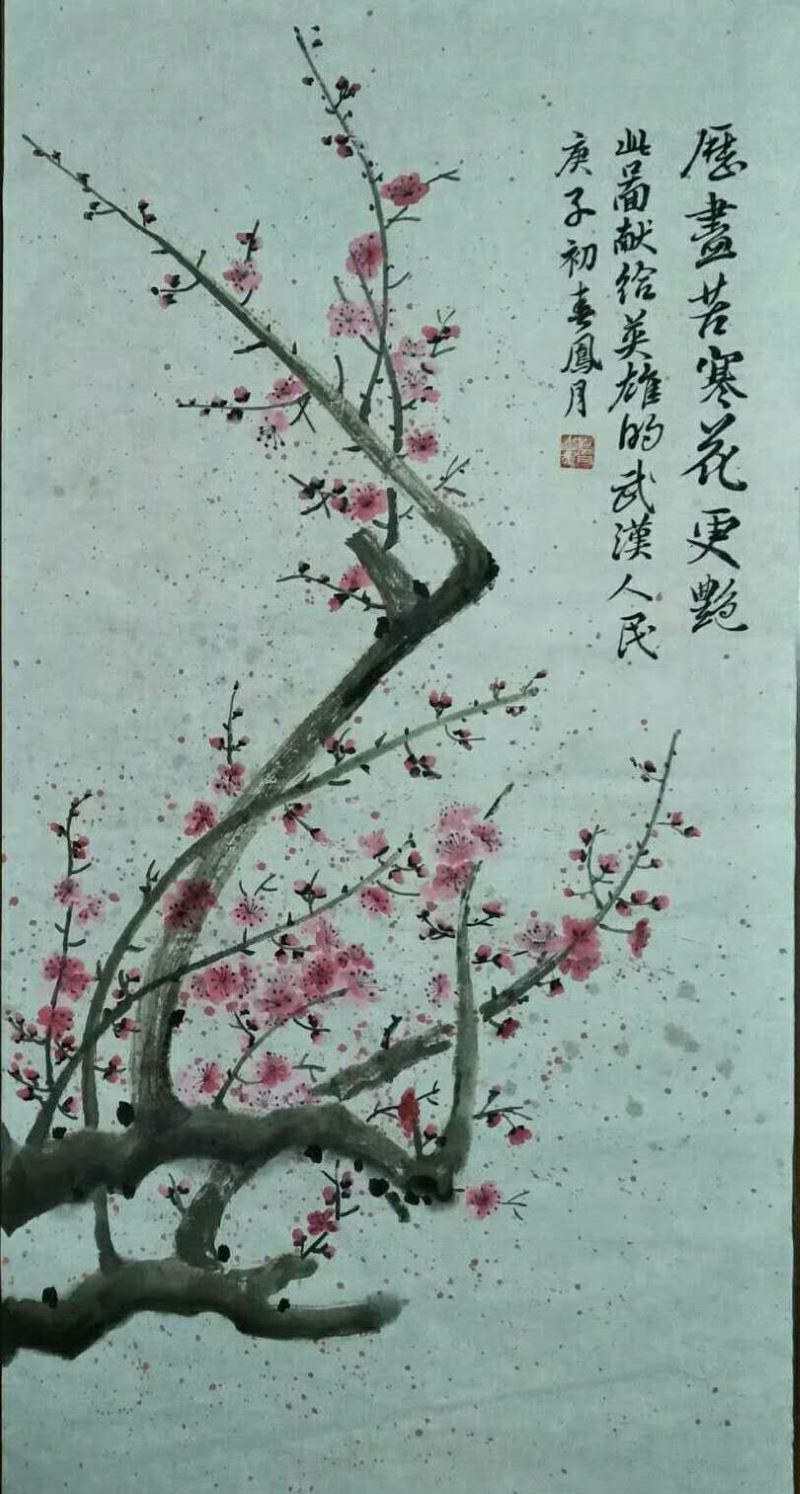 歷盡苦寒花更艷
此圖献给英雄的武漢人民
庚子初春鳳月